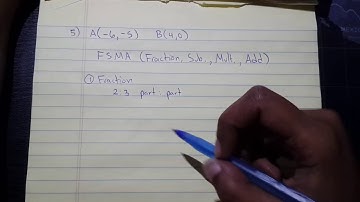 5) A(-6,-5) B(4,0)
FSMA (Fraction, Sub., Mult., Add)
① Fraction
2:3 part : part